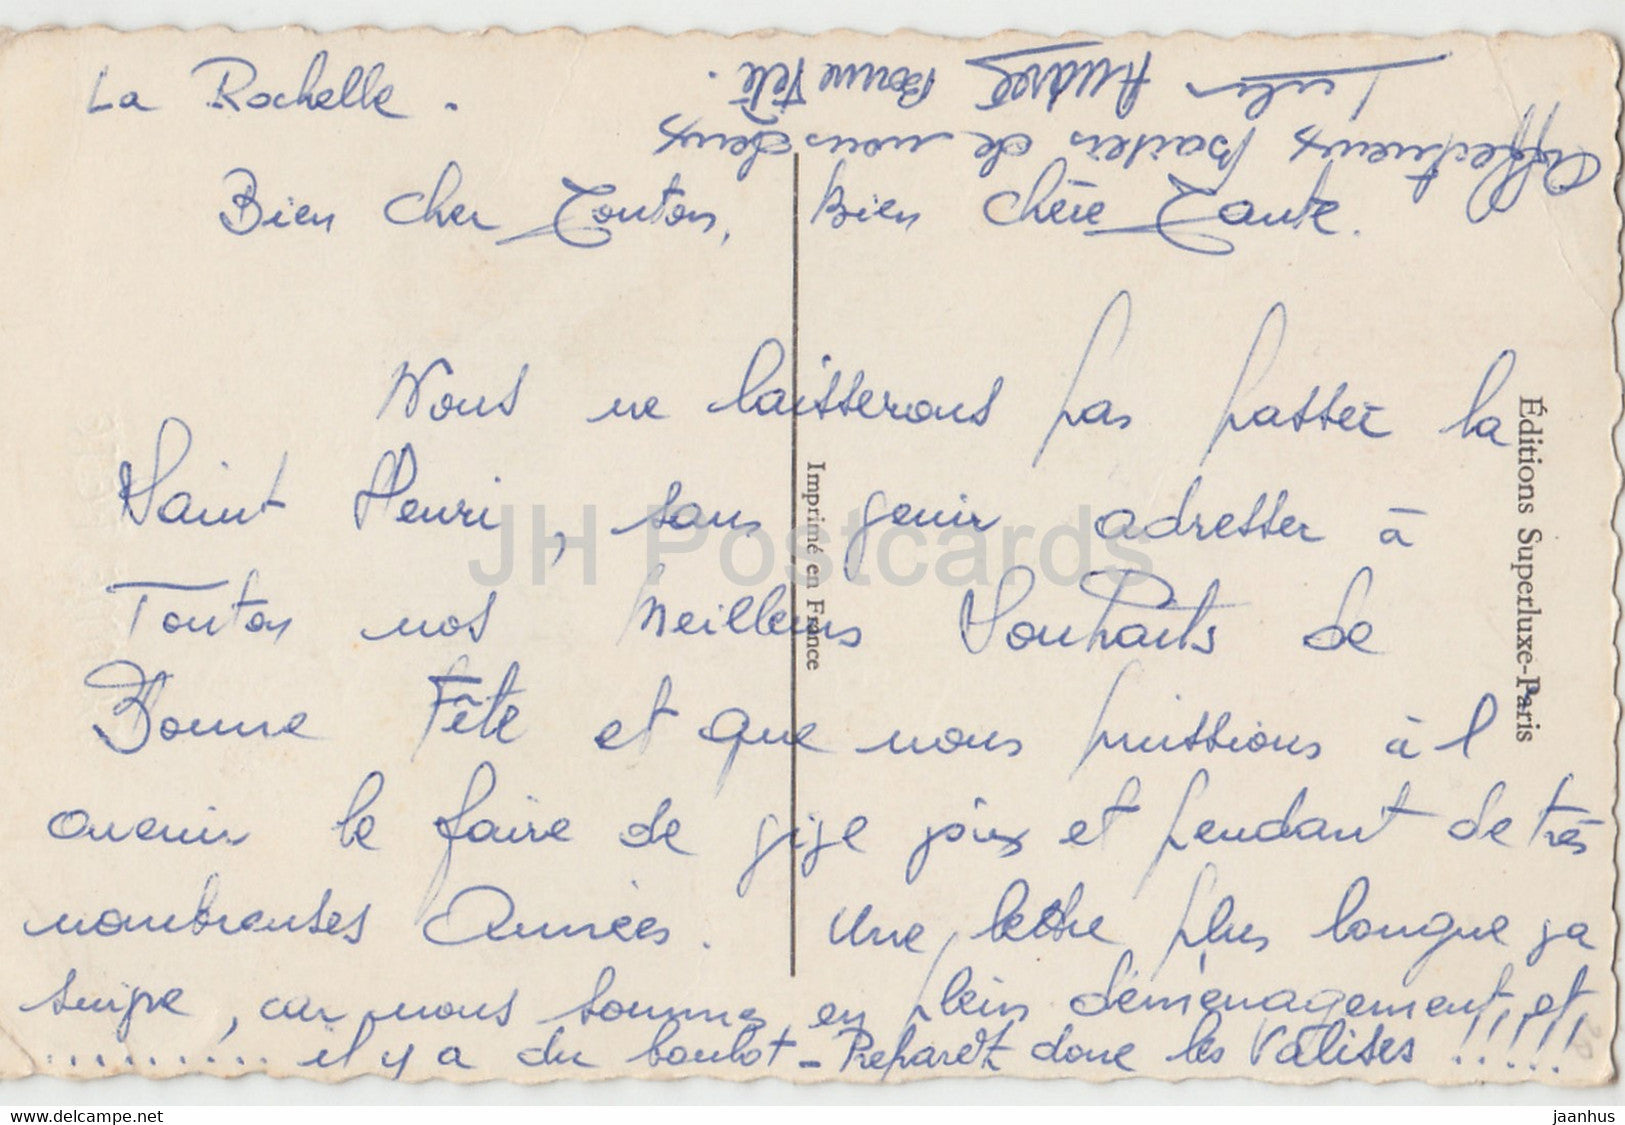 La Rochelle.
Bien cher Tonton, Bien chère Tante.
Nous ne laisserons pas passer la
Saint Henri, sans venir adresser à
Tonton nos Meilleurs Souhaits de
Bonne Fête et que nous puissions à l
avenir le faire de vive voix et pendant de très
nombreuses Années. Une lettre plus longue va
suivre, car nous sommes en plein déménagement, et,!!!!
......... il y a du boulot - Preparez donc les Valises !!!!!
Affectueux baisers de nous deux
Andrée Bonne Fête.
Imprimé en France
Éditions Superluxe-Paris
JH Postcards
delcampe.net
jaanhus